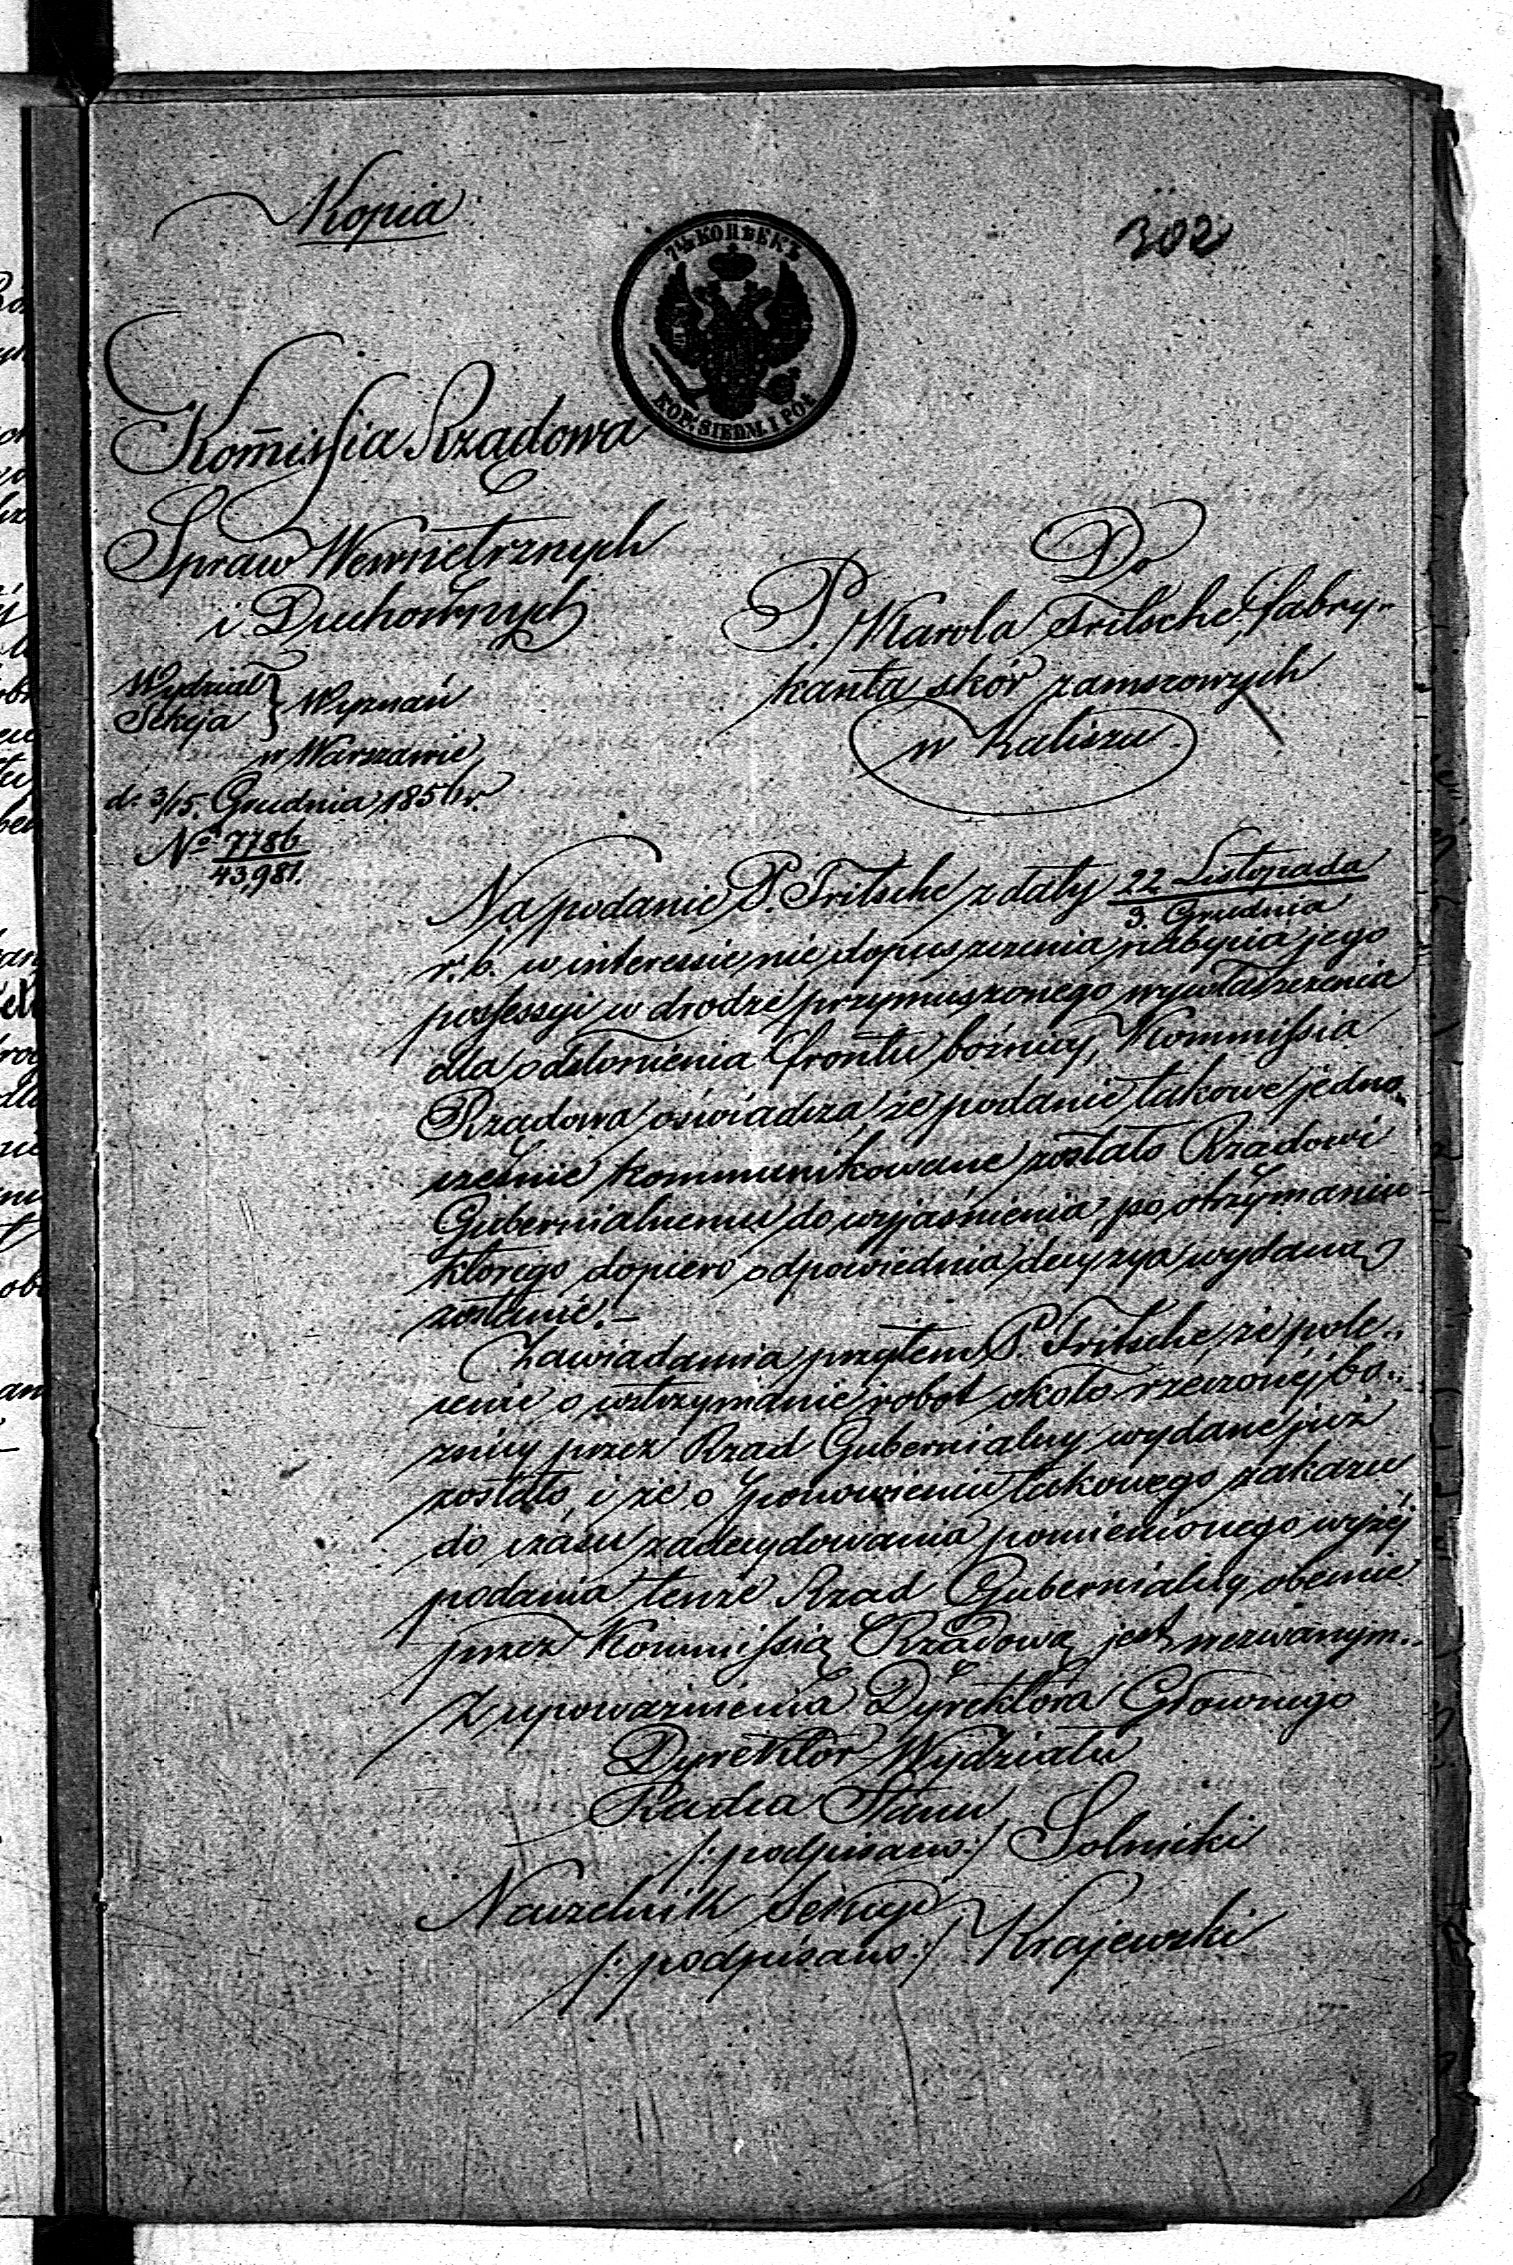 Kopia
302
7½ КОПѢЕКЪ
KOP. SIEDM I PÓŁ
Kom̄issia Rządowa
Spraw Wewnętrznych
i Duchownych
Wydział
Sekcja } Wyznań
w Warszawie
d. 3/15. Grudnia 1856 r.
No 7786
43,981.
Do
P. Karola Fritsche, fabry-
kanta skór zamszowych
w Kaliszu.
Na podanie P. Fritsche z daty 22 Listopada
3. Grudnia
r. b. w interessie nie dopuszczenia nabycia jego
possessyi w drodze przymuszonego wywłaszczenia
dla odsłonienia frontu bóźnicy, Kommissia
Rządowa oświadcza, że podanie takowe jedno-
cześnie kommunikowane zostało Rządowi
Gubernialnemu do wyjaśnienia, po otrzymaniu
którego dopiero odpowiednia decyzya wydaną
zostanie.–
Zawiadamia przytem P. Fritsche, że pole-
cenie o wstrzymanie robot około rzeczonéj bo-
żnicy przez Rząd Gubernialny wydane już
zostało, i że o ponowieniu takowego zakazu
do czasu zadecydowania pomienionego wyżéj
podania tenże Rząd Gubernialny obecnie
przez Kommissią Rządową jest wezwanym.
Z upoważnienia Dyrektora Głownego
Dyrektor Wydziału
Radca Stanu
/: podpisano :/ Solnicki
Naczelnik Sekcyi
/: podpisano :/ Krajewski